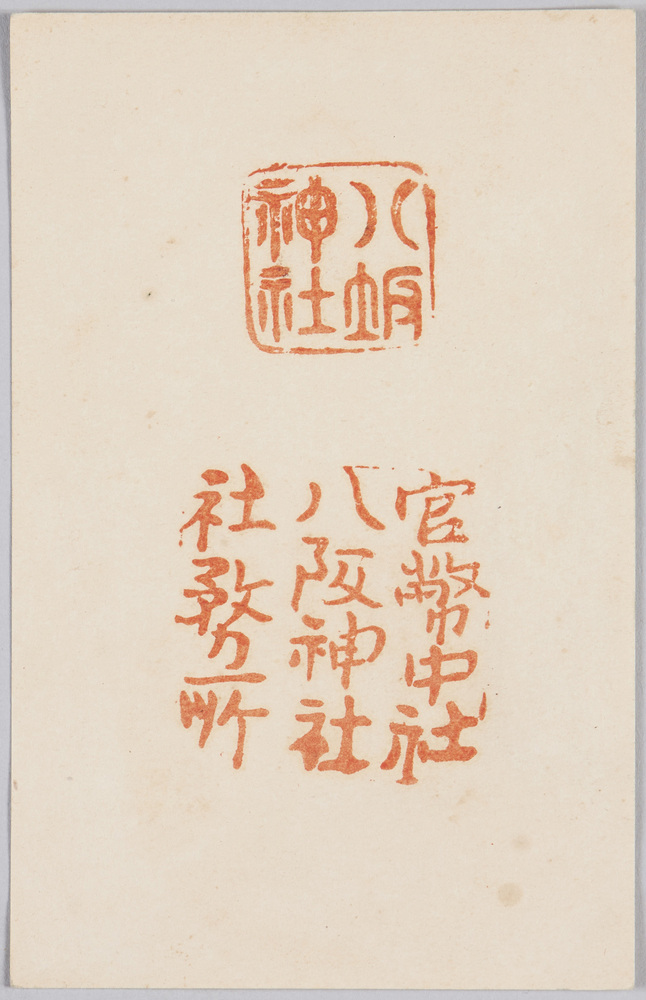 八坂
神社
官幣中社
八阪神社
社務所